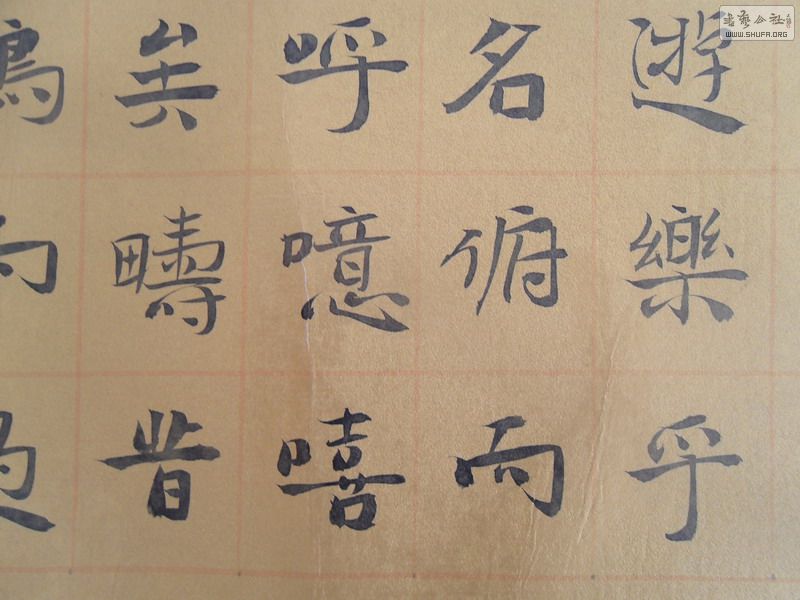 遊樂乎
名俯而
呼噫嘻
矣疇昔
書藝公社
WWW.SHUFA.ORG